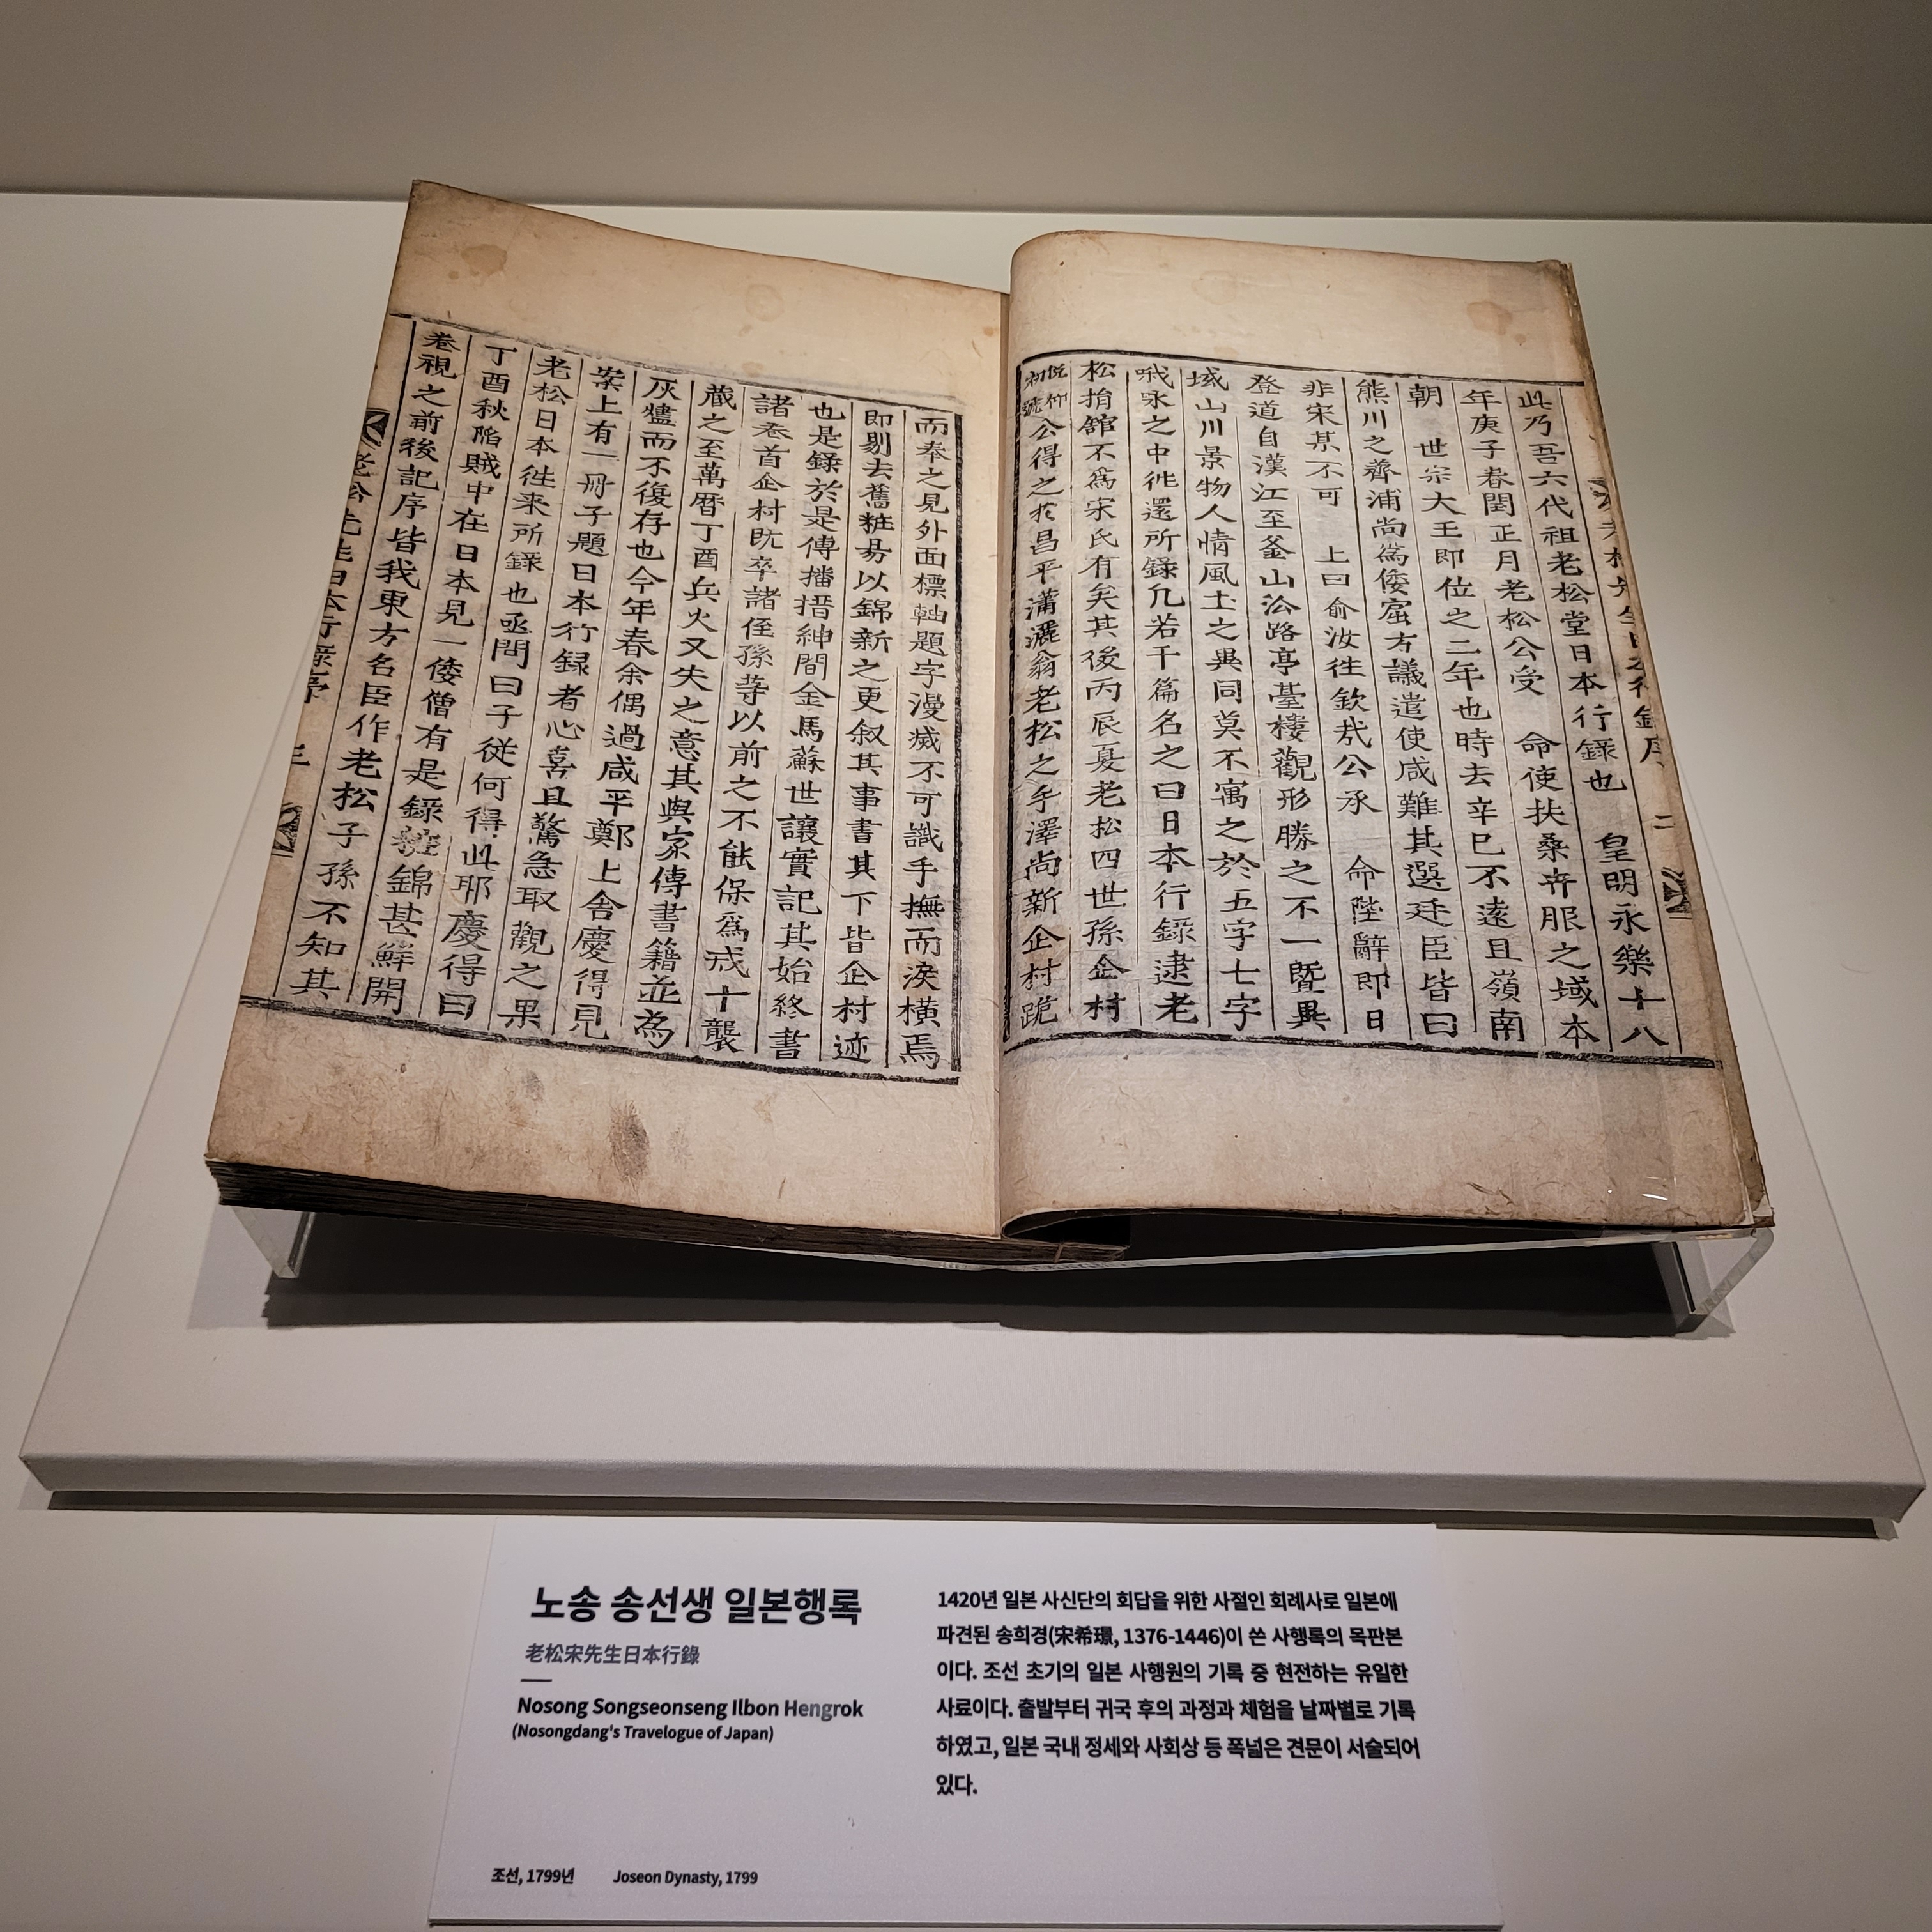 老松先生日本行錄序 二
此乃吾六代祖老松堂日本行錄也 皇明永樂十八
年庚子春閏正月老松公受 命使扶桑卉服之域本
朝 世宗大王即位之二年也時去辛巳不遠且嶺南
熊川之薺浦尚爲倭窟方議遣使咸難其選廷臣皆曰
非宋某不可 上曰俞汝徃欽㢤公承 命陛辭即日
登道自漢江至釜山㳂路亭臺樓觀形勝之不一曁異
域山川景物人情風土之異同莫不寓之於五字七字
哦咏之中徃還所錄凡若干篇名之曰日本行錄逮老
松捐舘不爲宋氏有矣其後丙辰夏老松四世孫企村
俛仰初號公得之於昌平瀟灑翁老松之手澤尚新企村跪
而奉之見外面標軸題字漫滅不可識手撫而淚横焉
即剔去舊粧易以錦新之更叙其事書其下皆企村迹
也是錄於是傳播搢紳間金馬蘇世讓實記其始終書
諸卷首企村既卒諸侄孫䓁以前之不能保爲戒十襲
藏之至萬曆丁酉兵火又失之意其與家傳書籍並為
灰燼而不復存也今年春余偶過咸平鄭上舍慶得見
案上有一冊子題日本行録者心喜且驚急取觀之果
老松日本徃来所錄也亟問曰子從何得此耶慶得曰
丁酉秋陷賊中在日本見一倭僧有是錄粧錦甚鮮開
卷視之前後記序皆我東方名臣作老松子孫不知其
老松先生日本行錄序 三
노송 송선생 일본행록
老松宋先生日本行錄
Nosong Songseonseng Ilbon Hengrok
(Nosongdang's Travelogue of Japan)
1420년 일본 사신단의 회답을 위한 사절인 회례사로 일본에
파견된 송희경(宋希璟, 1376-1446)이 쓴 사행록의 목판본
이다. 조선 초기의 일본 사행원의 기록 중 현전하는 유일한
사료이다. 출발부터 귀국 후의 과정과 체험을 날짜별로 기록
하였고, 일본 국내 정세와 사회상 등 폭넓은 견문이 서술되어
있다.
조선, 1799년 Joseon Dynasty, 1799